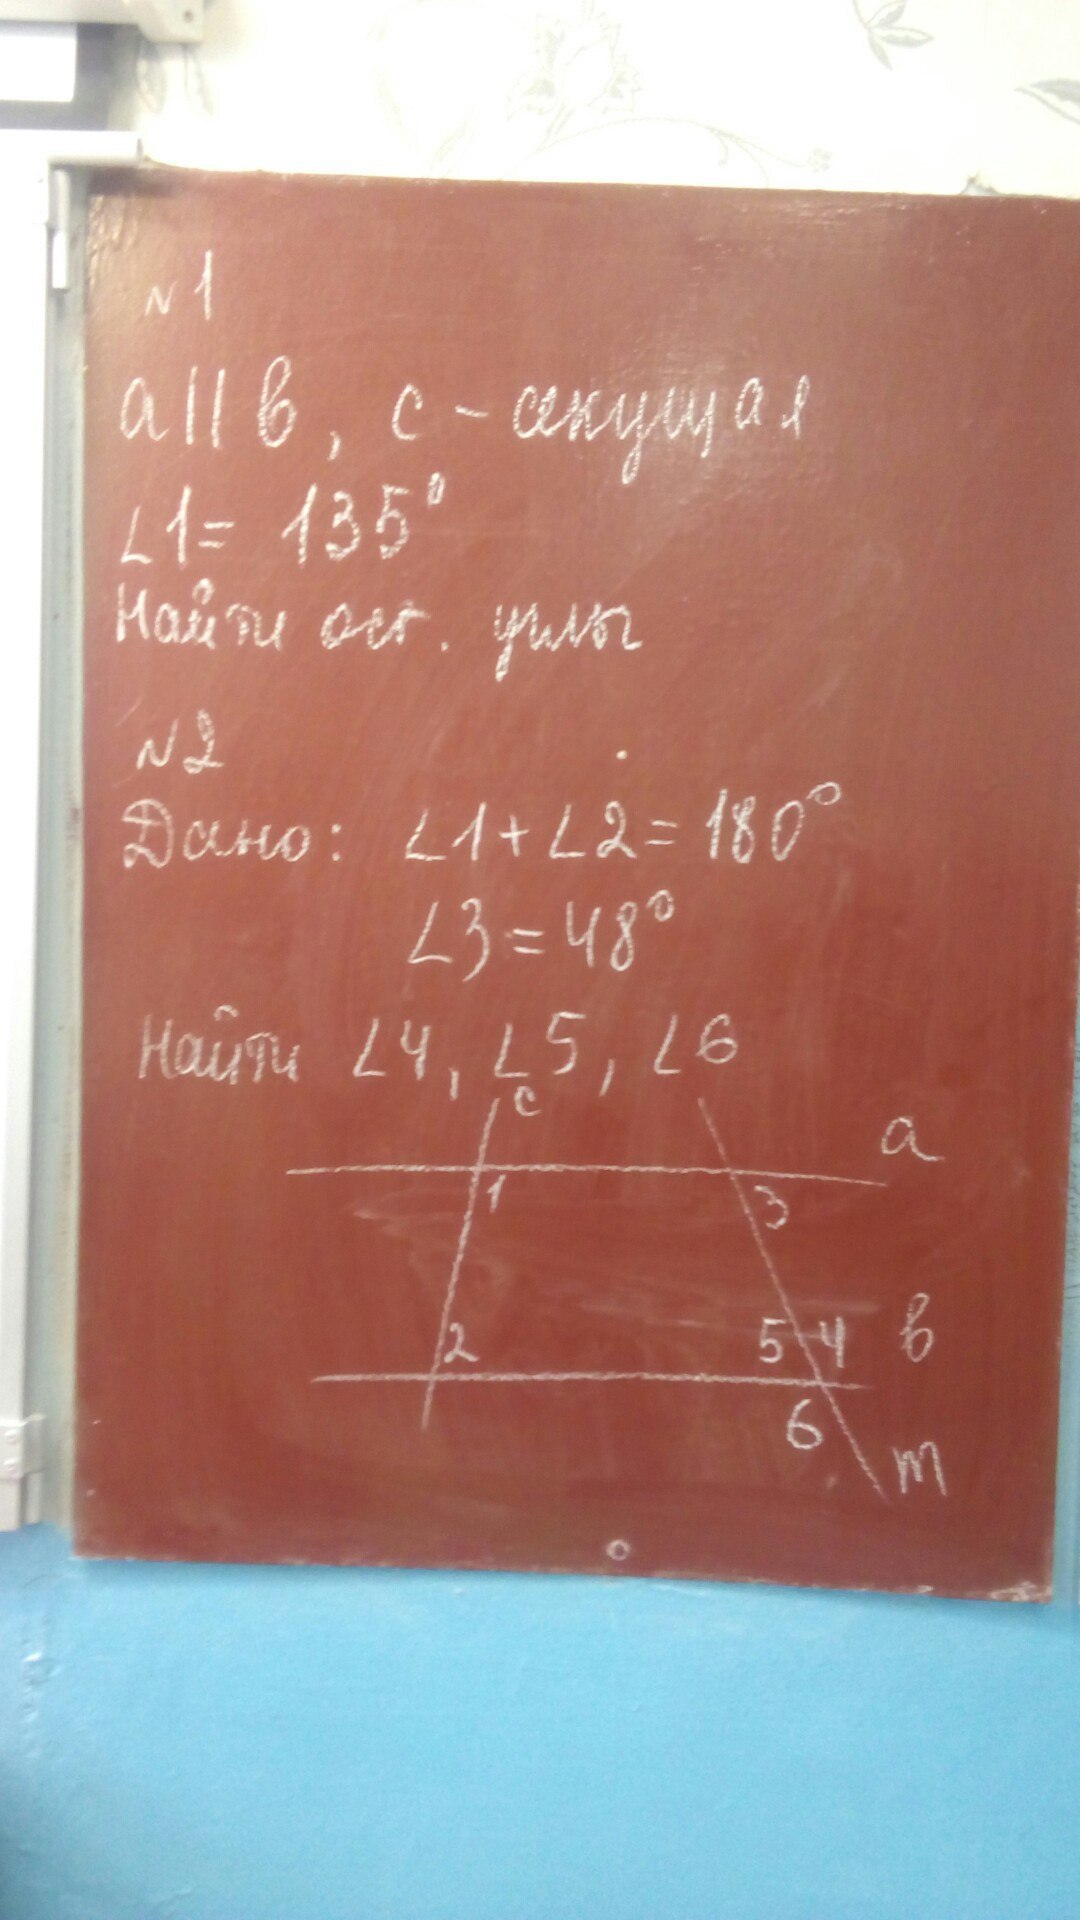 №1
а||в, с - секущая
∠1 = 135°
Найти ост. углы
№2
Дано: ∠1 + ∠2 = 180°
∠3 = 48°
Найти ∠4, ∠5, ∠6
с
а
1 3
2 5 4 в
6 m